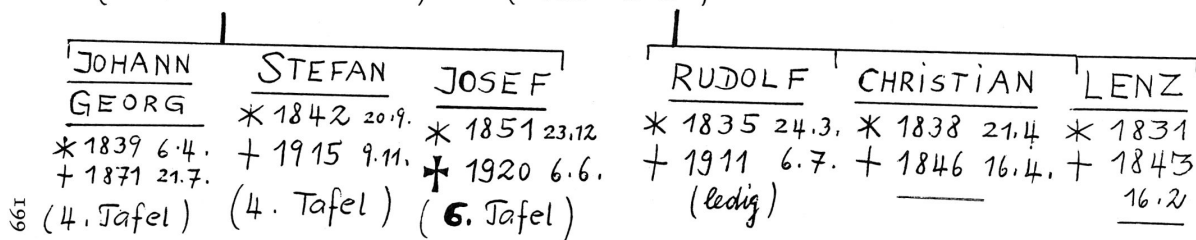 JOHANN
GEORG
* 1839 6.4.
+ 1871 21.7.
(4. Tafel)
STEFAN
* 1842 20.9.
+ 1915 9.11.
(4. Tafel)
JOSEF
* 1851 23.12
+ 1920 6.6.
(6. Tafel)
RUDOLF
* 1835 24.3.
+ 1911 6.7.
(ledig)
CHRISTIAN
* 1838 21.4
+ 1846 16.4.
LENZ
* 1831
+ 1843
16.2
199